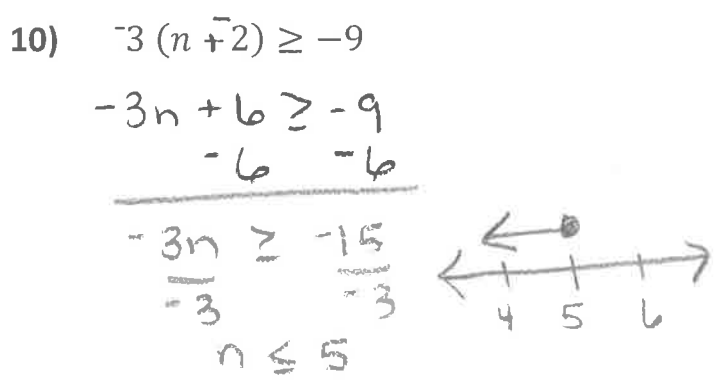 10) ⁻3 (n + ⁻2) ≥ −9
-3n + 6 ≥ -9
-6 -6
-3n ≥ -15
-3 -3
n ≤ 5
4 5 6